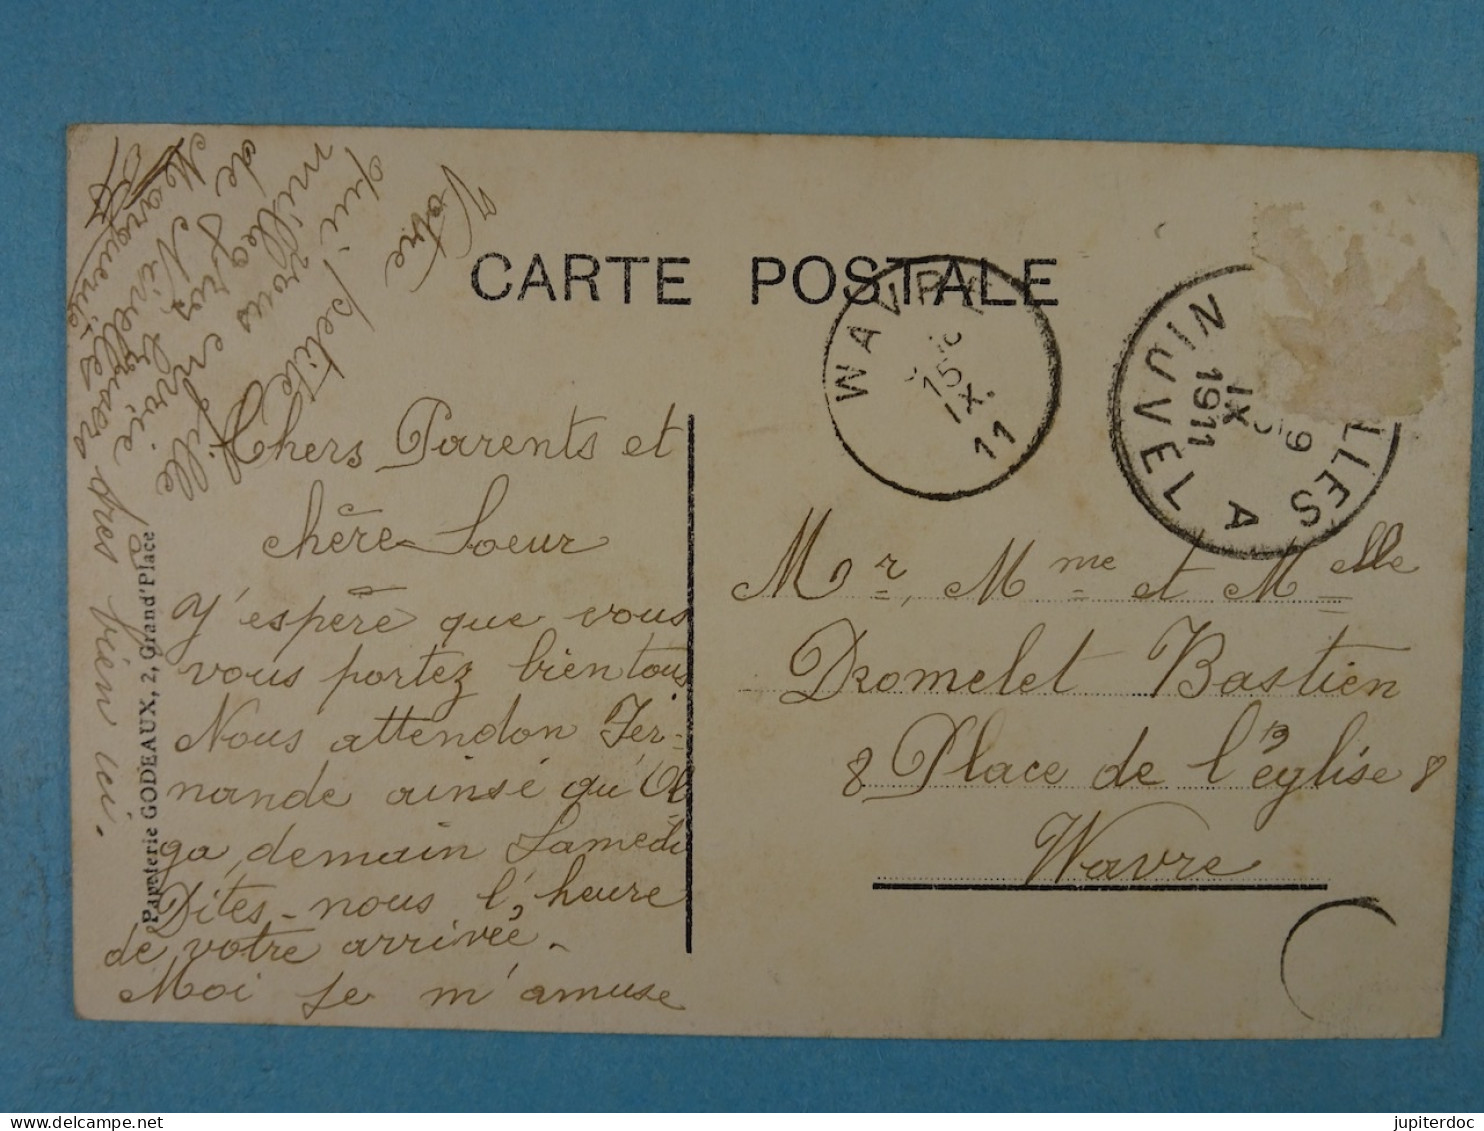 CARTE POSTALE
WAVRE
15
IX.
11
NIJVEL
1911
IX
9
LLES A
Chers Parents et
chère Soeur
J'espère que vous
vous portez bien tous
Nous attendon Fer-
nande ainsé qu'Ol
ga, demain Samedi
Dites-nous l'heure
de votre arrivée.
Moi je m'amuse
très bien ici.
Votre
petite fille
qui vous envoie
mille
de gros baisers
de Nivelles
Marguerite
Mr, Mme et Melle
Dromelet Bastien
8 Place de l'église 8
Wavre
Papeterie GODEAUX, 2, Grand'Place
delcampe.net
jupiterdoc